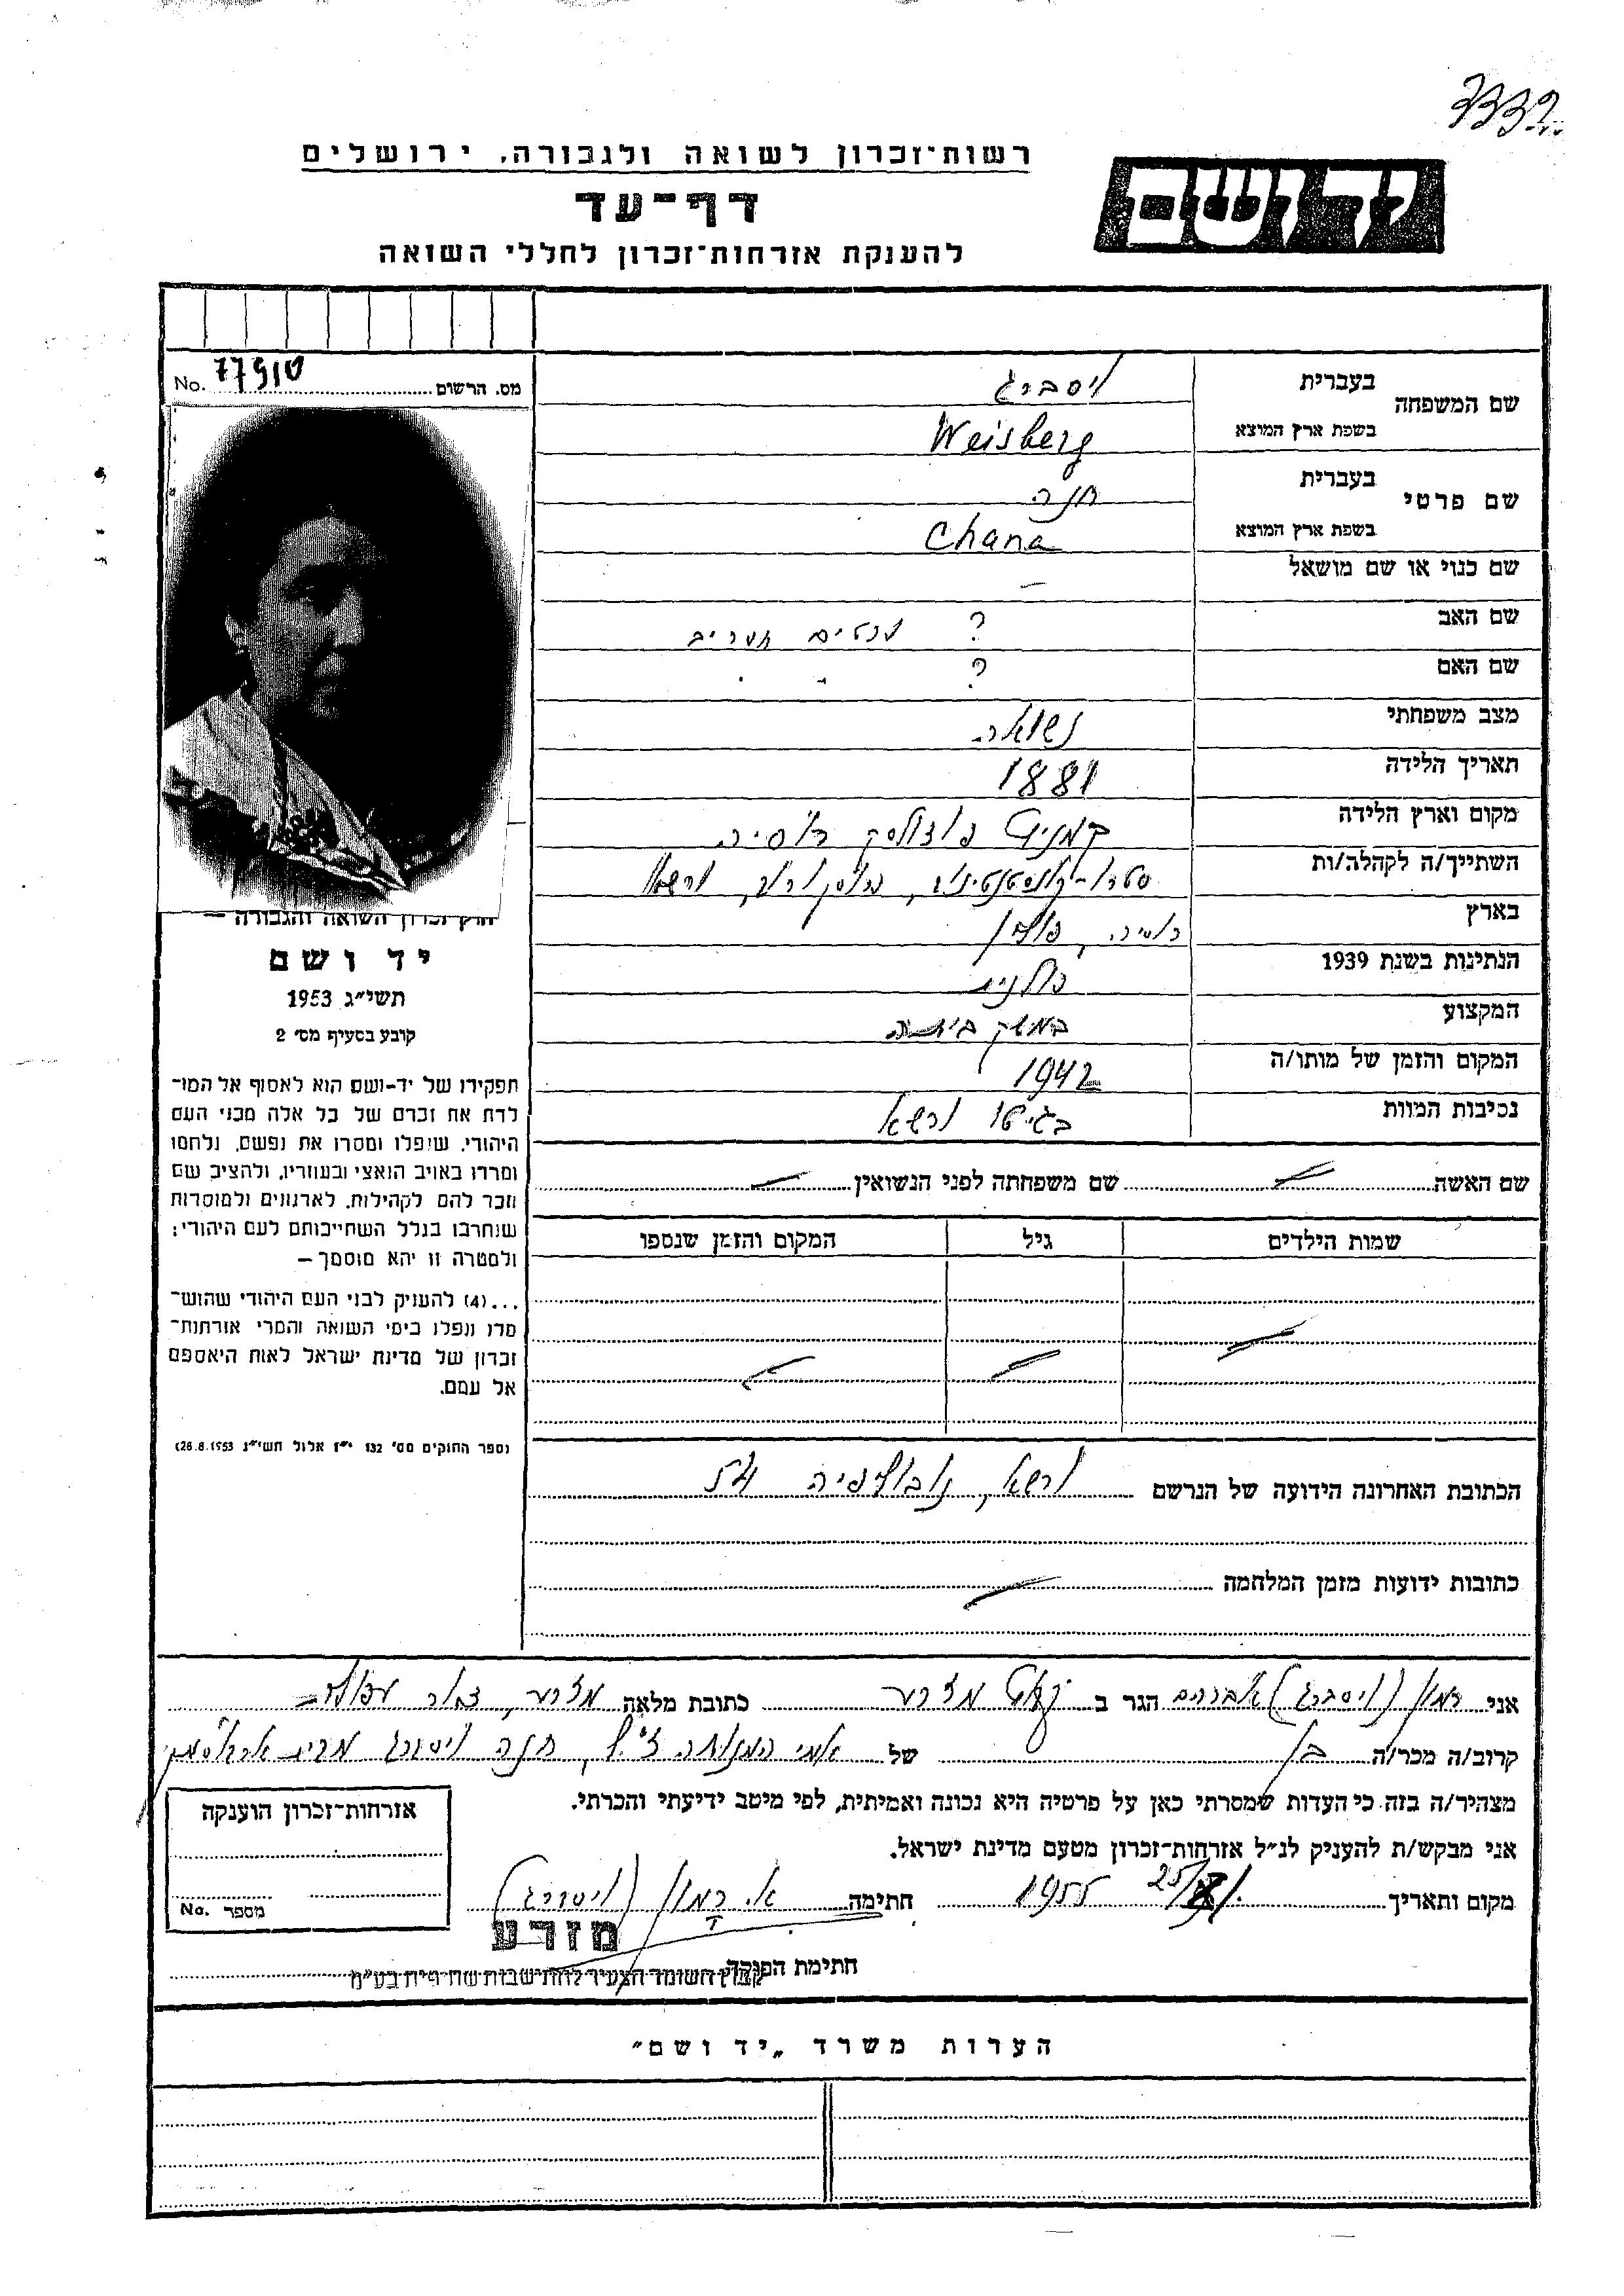 רשות־זכרון לשואה ולגבורה, ירושלים
דף־עד
להענקת אזרחות־זכרון לחללי השואה
יד ושם
מס. הרשום No. 77910
שם המשפחה בעברית ויסברג
בשפת ארץ המוצא Weisberg
שם פרטי בעברית חנה
בשפת ארץ המוצא Chana
שם כנוי או שם מושאל —
שם האב ?
שם האם ?
מצב משפחתי נשואה
תאריך הלידה 1881
מקום וארץ הלידה קמניץ פודולסק רוסיה
השתייך/ה לקהלה/ות סטרו-קונסטנטינוב, ורשא
בארץ רוסיה, פולין
הנתינות בשנת 1939 פולנית
המקצוע במשק ביתה
המקום והזמן של מותו/ה 1942
נסיבות המוות בגיטו ורשא
חוק זכרון השואה והגבורה —
יד ושם
תשי״ג 1953
קובע בסעיף מס׳ 2
תפקידו של יד-ושם הוא לאסוף אל המו־
לדת את זכרם של כל אלה מבני העם
היהודי, שנפלו ומסרו את נפשם, נלחמו
ומרדו באויב הנאצי ובעוזריו, ולהציב שם
וזכר להם לקהילות, לארגונים ולמוסדות
שנחרבו בגלל השתייכותם לעם היהודי;
ולמטרה זו יהא מוסמך —
...(4) להעניק לבני העם היהודי שהוש־
מדו ונפלו בימי השואה והמרי אזרחות־
זכרון של מדינת ישראל לאות היאספם
אל עמם.
(ספר החוקים מס׳ 132 י״ז אלול תשי״ג 28.8.1953)
שם האשה — שם משפחתה לפני הנשואין —
שמות הילדים גיל המקום והזמן שנספו
הכתובת האחרונה הידועה של הנרשם ורשא, נובוליפיה 54
כתובות ידועות מזמן המלחמה —
אני רמון (ויסברג) אברהם הגר ב מזרע כתובת מלאה מזרע, דאר
קרוב/ה מכר/ה בן של אמי המנוחה ז״ל, חנה ויסברג מבית
מצהיר/ה בזה כי העדות שמסרתי כאן על פרטיה היא נכונה ואמיתית, לפי מיטב ידיעתי והכרתי.
אני מבקש/ת להעניק לנ״ל אזרחות־זכרון מטעם מדינת ישראל.
מקום ותאריך 1955 חתימה א. רמון (ויסברג)
אזרחות־זכרון הוענקה
מספר No.
מזרע
חתימת הפוקד
קבוץ השומר הצעיר להתישבות שתופית בע״מ
הערות משרד „יד ושם״